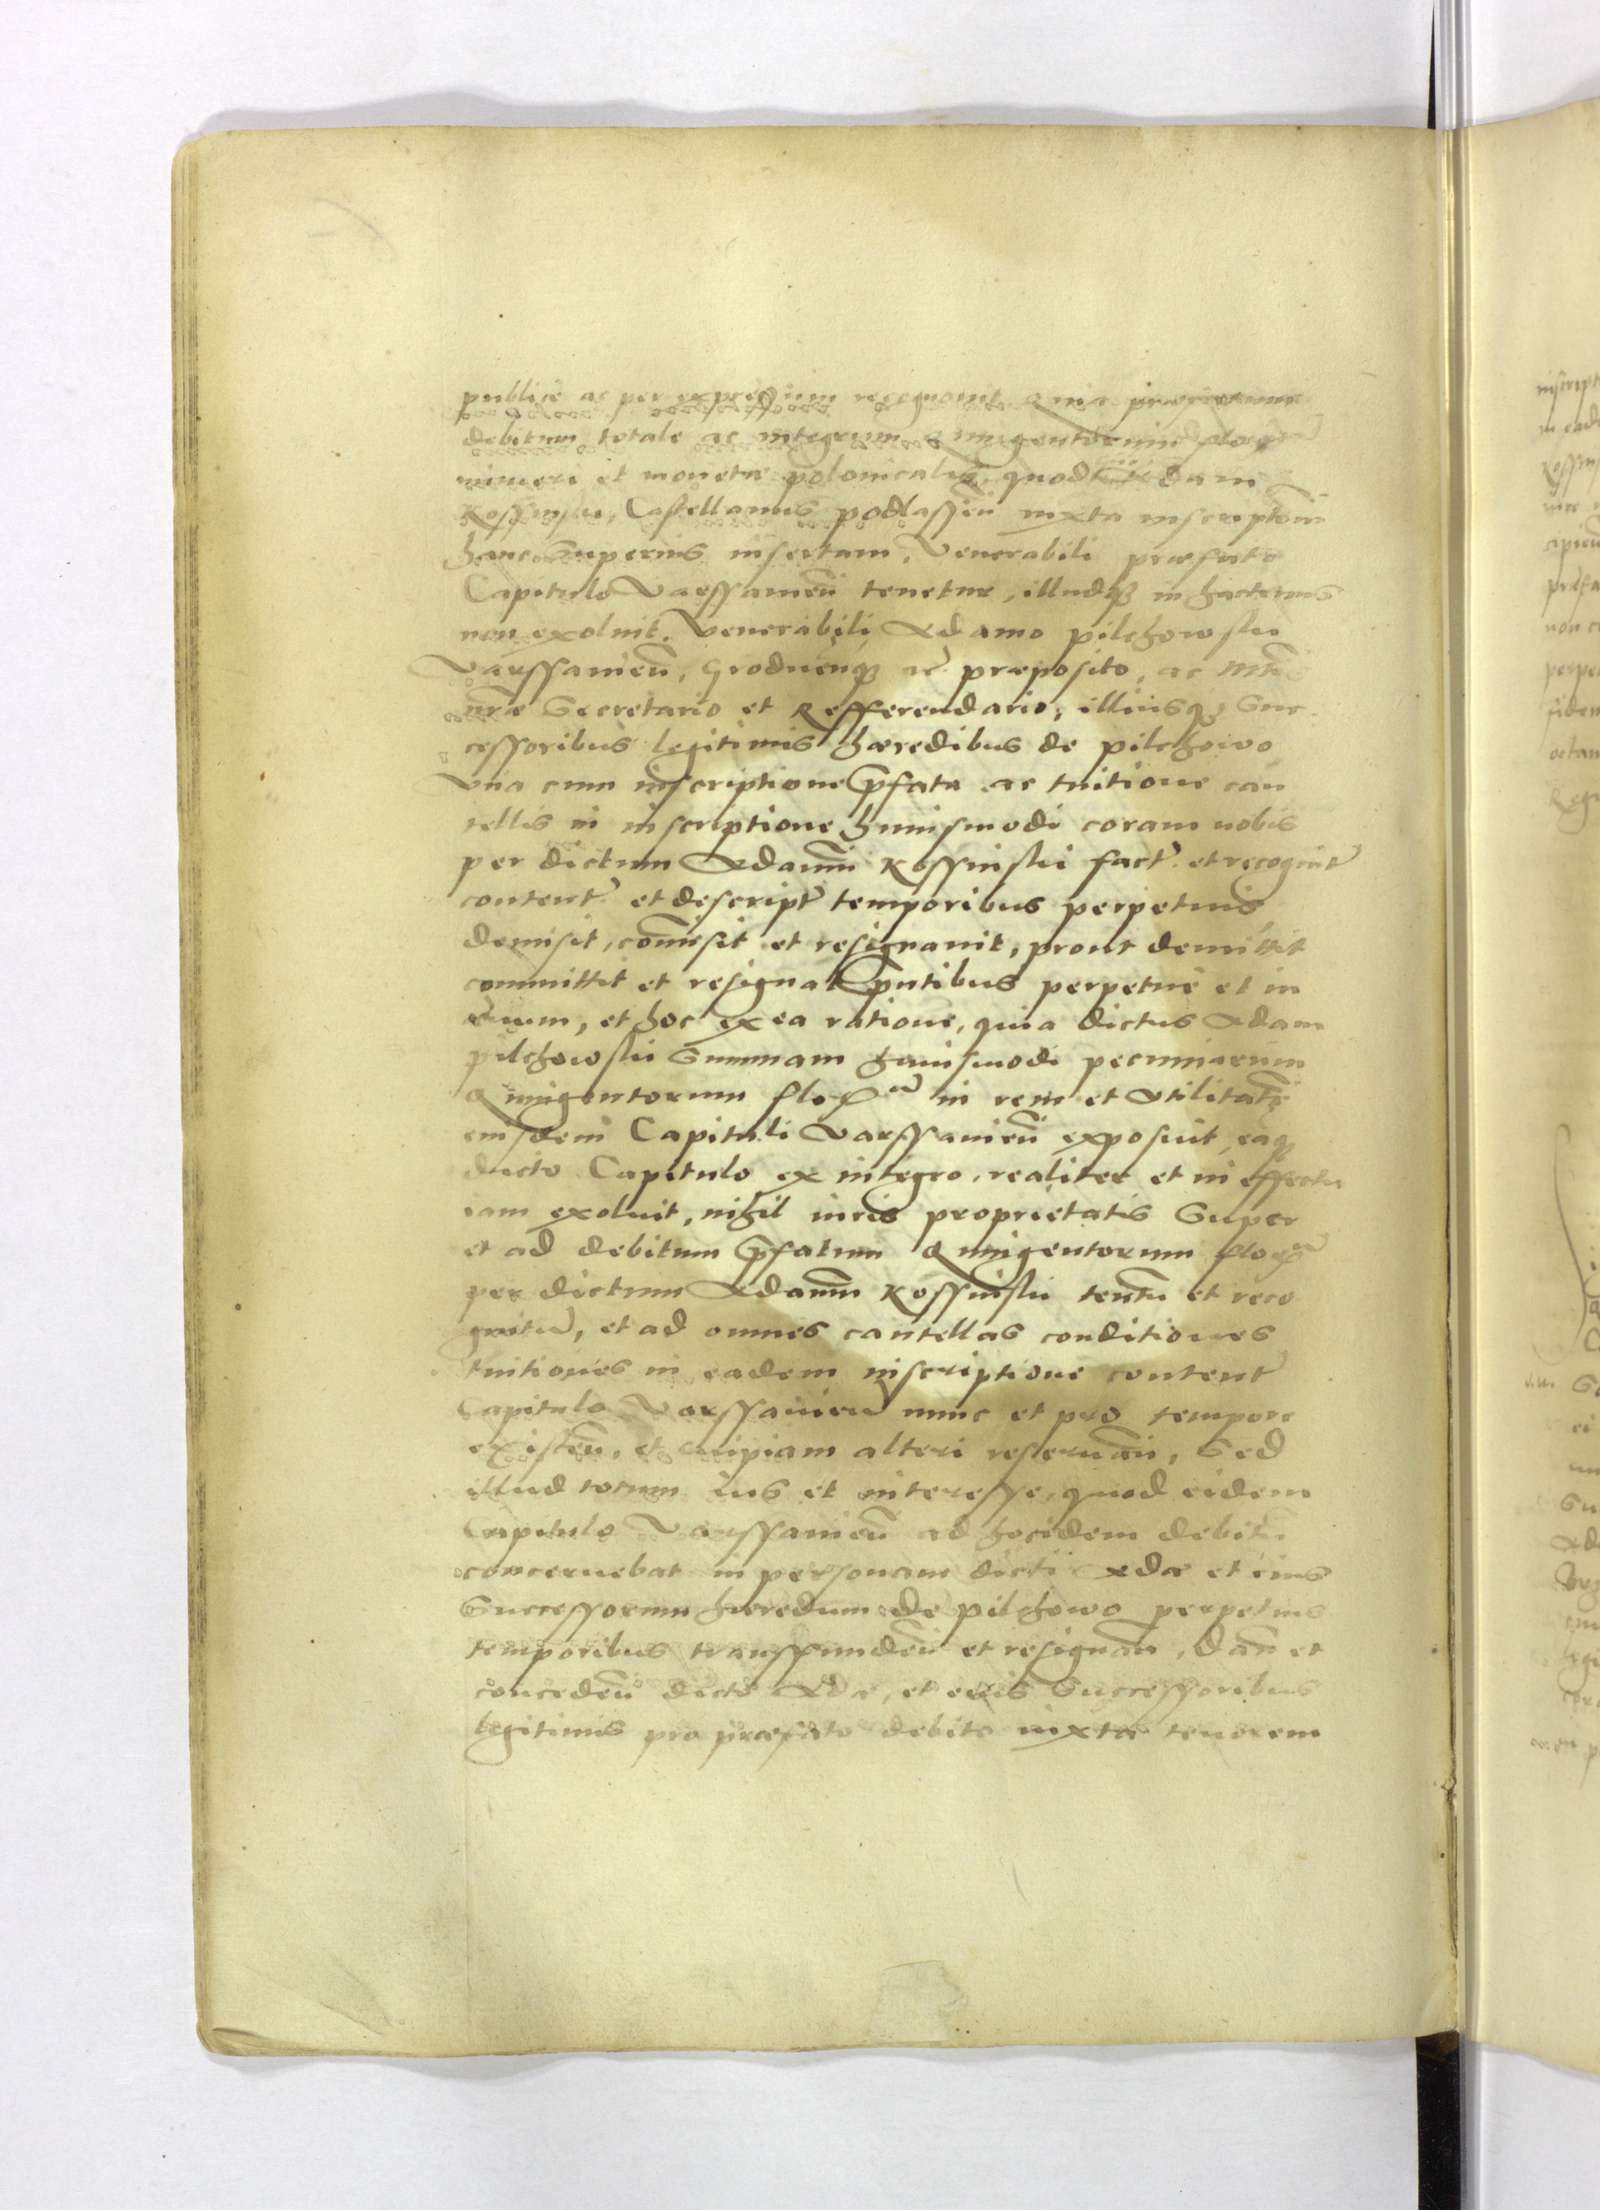 publice ac per expressum recognovit Quia praescriptum
debitum totale ac integrum Quingentorum flor.
numeri et monetae polonicalis, quod Adam
Kossinski, Castellanus podlassień iuxta inscriptōm
hanc superius insertam, Venerabili praefato
Capitulo Varssavień tenetur, illudq̃ in hactenus
non exoluit. Venerabili Adamo pilchowski
Varssavień, Grodneńq̃ etc̃ praeposito, ac Mtis
nr̃ae Secretario et Refferendario, illiusq̃ Suc
cessoribus legitimis haeredibus de pilchowo
Vna cum inscriptione p̃fata ac tuitione cau
tellis in inscriptione huiusmodi coram nobis
per dictum Adamũ Kossinski fact̃ et recognit̃
content̃ et descript̃ temporibus perpetuis
demisit, com̃isit et resignauit, prout demittit
committit et resignat p̃ntibus perpetue et in
aeuum, et hoc ex ea ratione, quia dictus Adam
pilchowski Summam huiusmodi pecuniarum
Quingentorum flor. in rem et Vtilitatẽ
eiusdem Capituli Varssavień exposuit, eaq̃
dicto Capitulo ex integro, realiter et in effectu
iam exoluit, nihil iuris proprietatis Super
et ad debitum p̃fatum Quingentorum flor.
per dictum Adamũ Kossinski tentũ et reco
gnitũ, et ad omnes cautellas conditiones
tuitiones in eadem inscriptione content̃
Capitulo Varssavień nunc et pro tempore
existeñ, et cuipiam alteri reseruań, Sed
illud totum ius et interesse, quod eidem
Capitulo Varssavień ad hocidem debitũ
concernebat in personam dicti Adae et eius
Successorum haeredum de pilchowo perpetuis
temporibus transfundeń et resignań, dań et
concedeń dicto Adae, et eius Successoribus
legitimis pro praefato debito iuxta tenorem